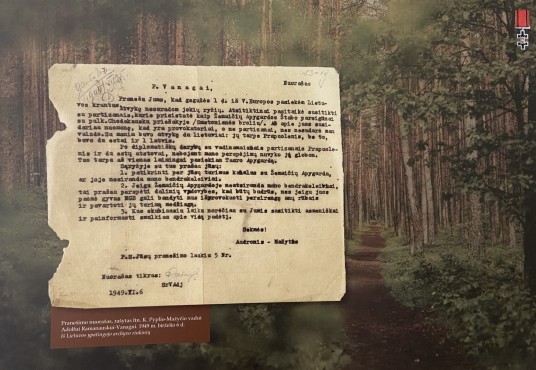 Nuorašas
P. Vanagai,
Pranešu Jums, kad gegužės 1 d. iš V.Europos pasiekėm Lietu-
vos krantus.
Atvykę nesuradom jokių ryšių. Atsitiktinai pasitaikė susitikti
su partizanais, kurie prisistatė kaip Žemaičių Apygardos Štabo pareigūnai
su pulk.
priešakyje
nuomonę, kad yra provokatoriai, o ne partizanai, nes nesudarė man
vaizdo. Su manim buvo atvykę du lietuviai: jų tarpe Prapuolenis, be to,
buvo du estai ir 1 latvis.
Po diplomatiškų derybų su vadinamaisiais partizanais Prapuole-
nis ir du estų atstovai, nebojant mano perspėjimų nuvyko jų globon.
Tuo tarpu aš vienas laimingai pasiekiau Tauro Apygardą.
Ryšyje su tuo prašau Jūsų:
1. patikrinti per Jūsų turimus kanalus su Žemaičių Apygarda,
ar joje nesiranda mano bendrakeleiviai.
2. Jeigu Žemaičių Apygardoje nesiranda mano bendrakeleiviai,
tai prašau perspėti dalinių vadovybes, kad būtų budrūs, nes jeigu juos
paėmė gyvus MGB gali bandyti
ir pavartoti jų turimą medžiagą.
3. Kuo skubiausiu laiku norėčiau su Jumis susitikti asmeniškai
ir painformuoti smulkiau apie visą padėtį.
Sėkmės!
Audronis - Mažytis
P.S. Jūsų pranešimo lauksiu 5 Nr.
Nuorašas tikras:
1949.XI.6
Pranešimo nuorašas, rašytas ltn. K. Pyplio-Mažyčio vadui
Adolfui Ramanauskui-Vanagui. 1949 m. birželio 6 d.
Iš Lietuvos ypatingojo archyvo rinkinių